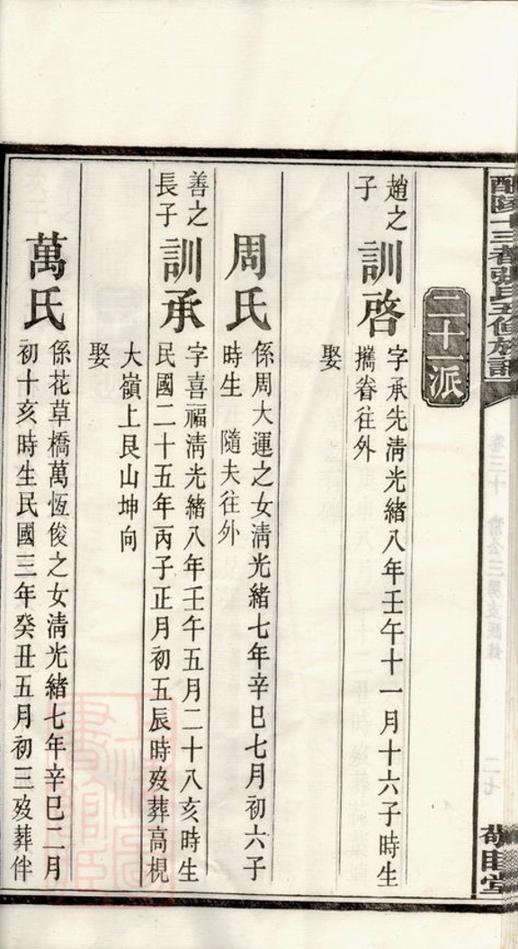 醴陵十三都張氏五修族譜
卷三十
二七
二十一派
趙之
子
訓啓
字承先清光緒八年壬午十一月十六子時生
攜眷往外
娶
周氏
係周大運之女清光緒七年辛巳七月初六子
時生 隨夫往外
善之
長子
訓承
字喜福清光緒八年壬午五月二十八亥時生
民國二十五年丙子正月初五辰時歿葬高梘
大嶺上艮山坤向
娶
萬氏
係花草橋萬恆俊之女清光緒七年辛巳二月
初十亥時生民國三年癸丑五月初三歿葬伴